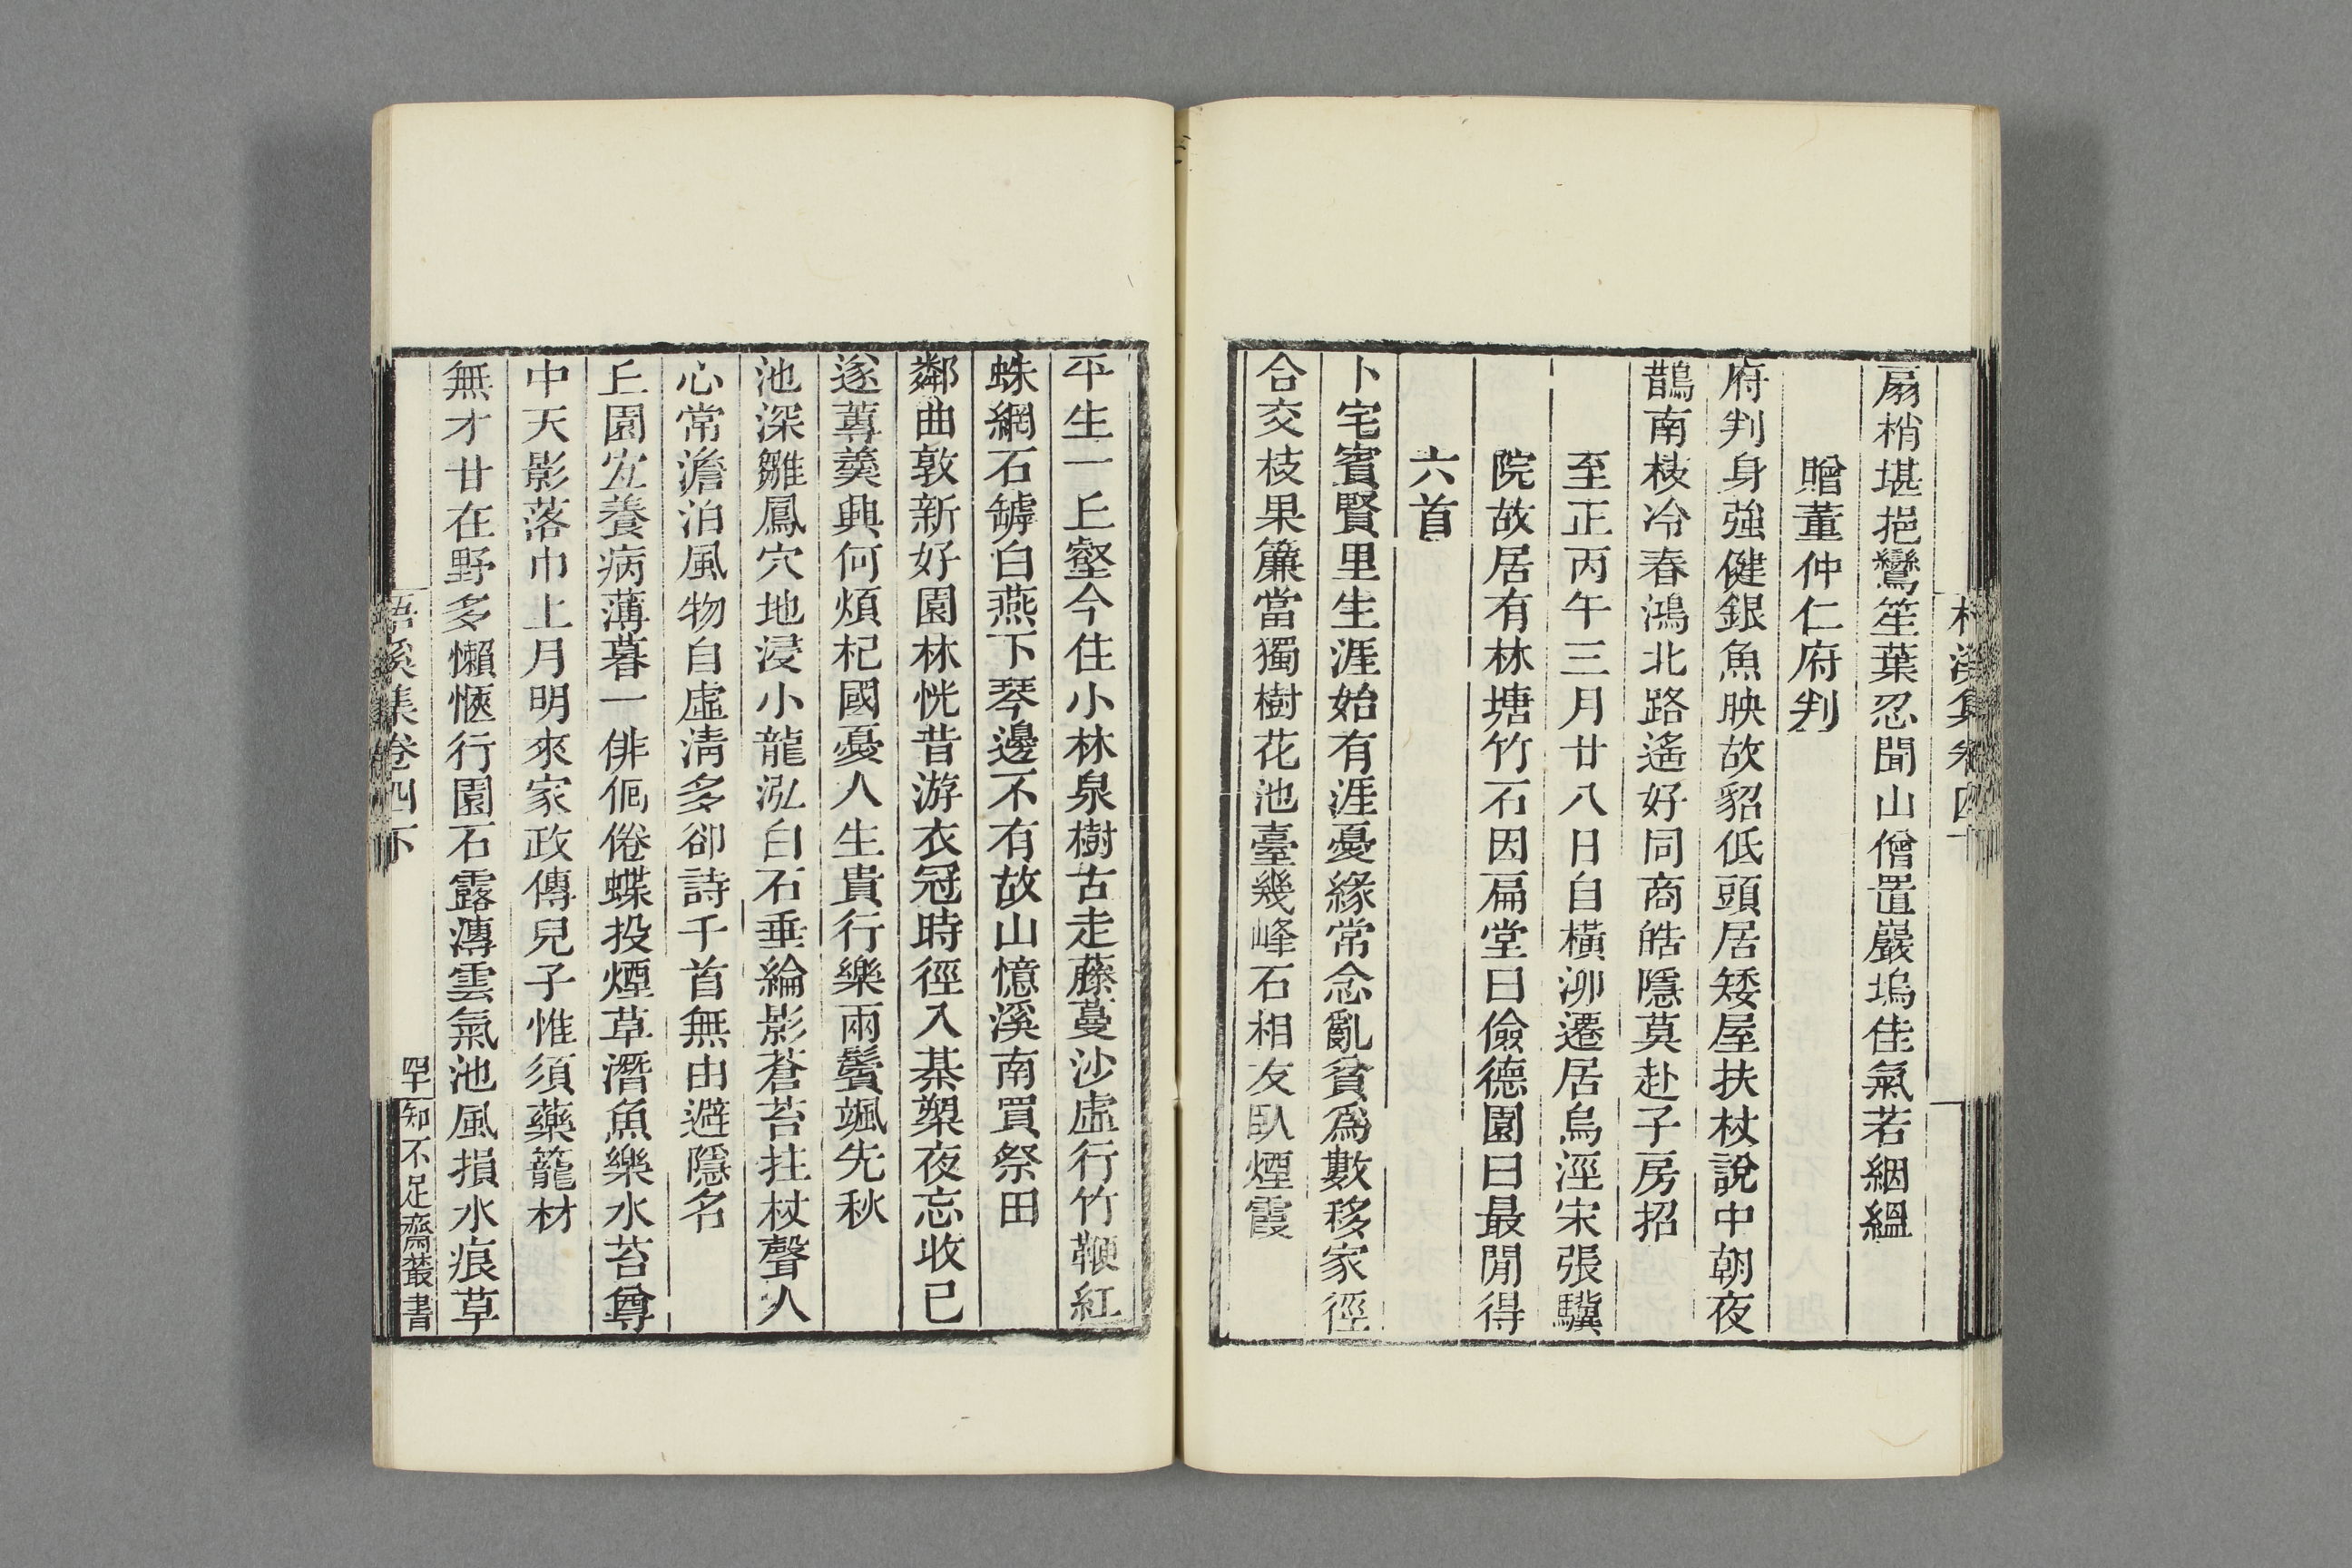 扇梢堪挹鸞笙葉忍聞山僧置巖塢佳氣若絪縕
贈董仲仁府判
府判身強健銀魚映故貂低頭居矮屋扶杖說中朝夜
鵲南枝冷春鴻北路遙好同商皓隱莫赴子房招
至正丙午三月廿八日自橫泖遷居烏涇宋張驥
院故居有林塘竹石因扁堂曰儉德園曰最閒得
六首
卜宅賓賢里生涯始有涯憂緣常念亂貧爲數移家徑
合交枝果簾當獨樹花池臺幾峰石相友臥煙霞
平生一丘壑今住小林泉樹古走藤蔓沙虛行竹鞭紅
蛛網石罅白燕下琴邊不有故山憶溪南買祭田
鄰曲敦新好園林恍昔游衣冠時徑入棊槊夜忘收已
遂蓴羹興何煩杞國憂人生貴行樂兩鬢颯先秋
池深雛鳳穴地浸小龍泓白石垂綸影蒼苔拄杖聲人
心常澹泊風物自虛清多卻詩千首無由避隱名
丘園宜養病薄暮一俳佪倦蝶投煙草潛魚樂水苔尊
中天影落巾上月明來家政傳兒子惟須藥籠材
無才甘在野多懶愜行園石露漙雲氣池風損水痕草
梧溪集卷四下
四十
知不足齋叢書